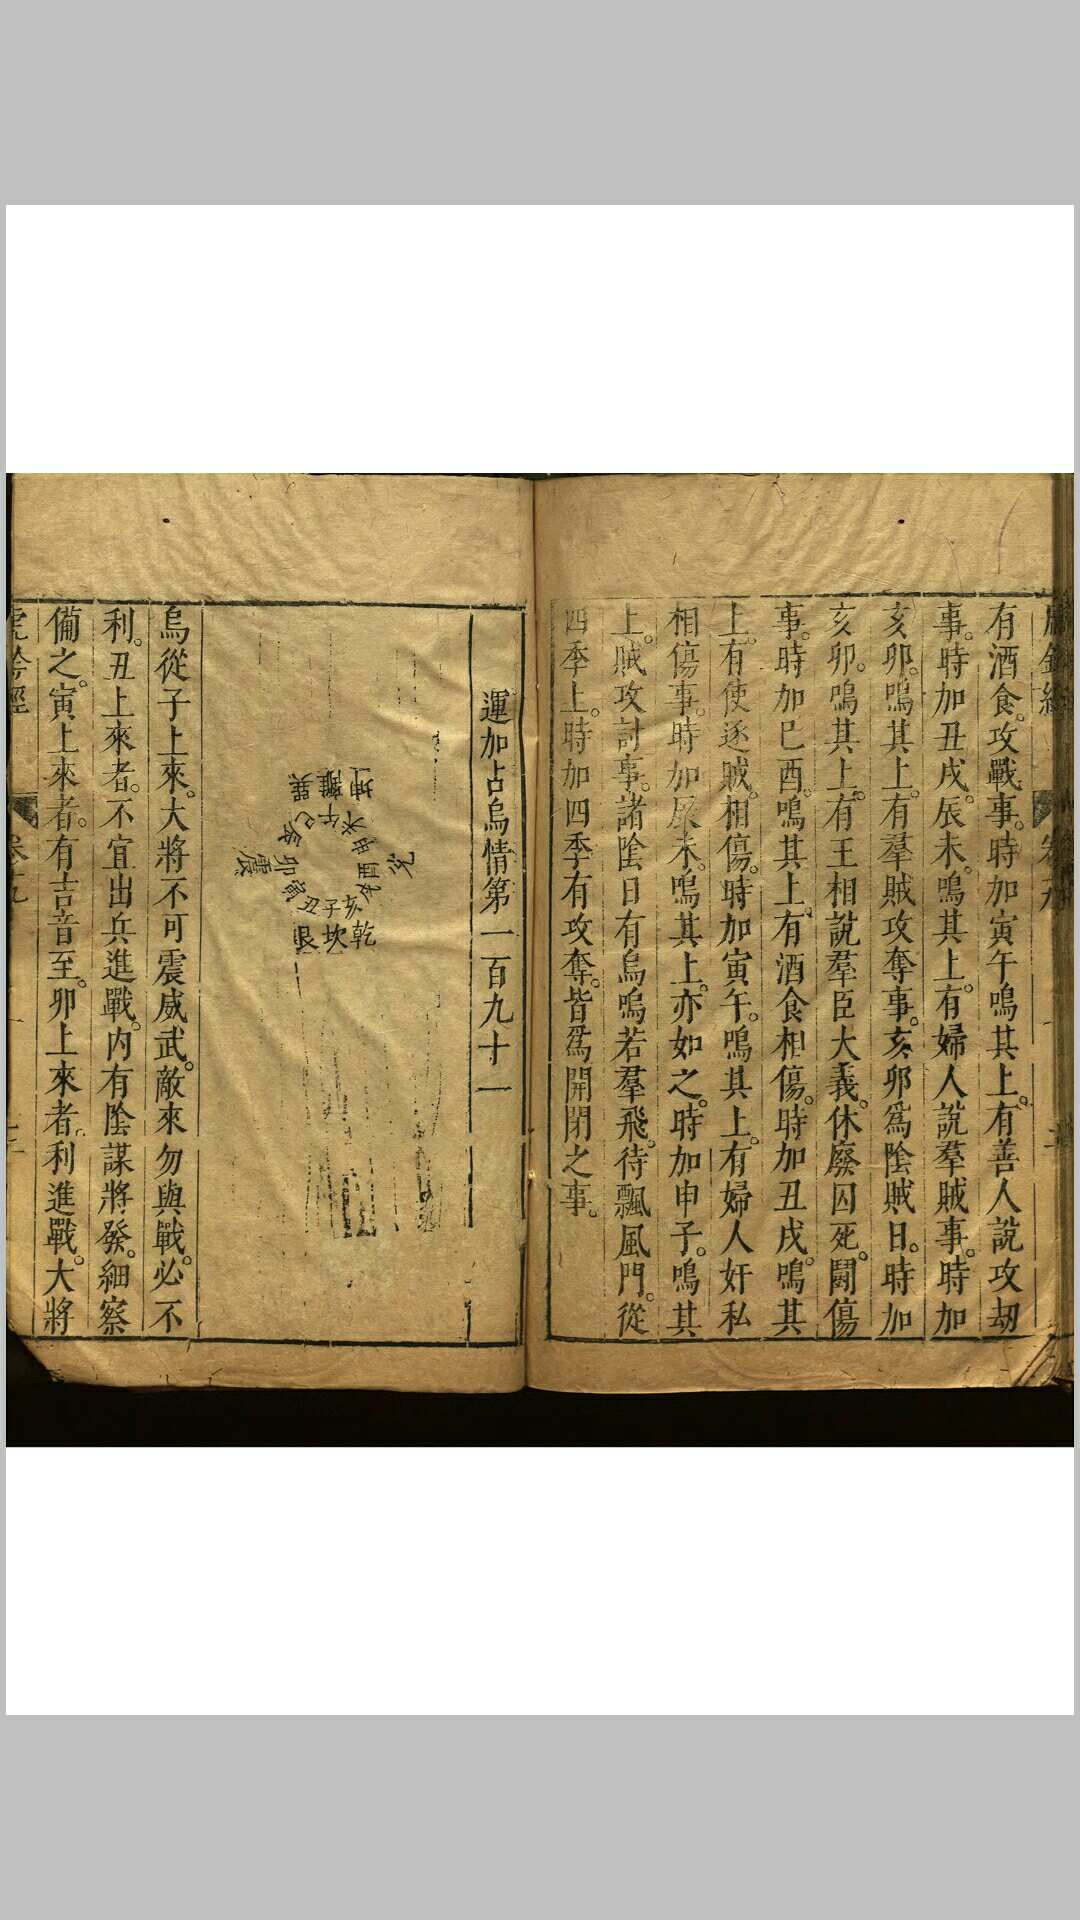 有酒食。攻戰事。時加寅午鳴其上。有善人說攻刼
事。時加丑戌。辰未。鳴其上。有婦人說羣賊事。時加
亥卯。鳴其上。有羣賊攻奪事。亥卯爲陰賊日。時加
亥卯。鳴其上。有王相說羣臣大義。休廢囚死。鬬傷
事。時加巳酉。鳴其上。有酒食相傷。時加丑戌。鳴其
上。有使逐賊。相傷。時加寅午。鳴其上。有婦人奸私
相傷事。時加辰未。鳴其上。亦如之。時加申子。鳴其
上。賊攻討事。諸陰日有烏鳴若羣飛。待飄風門。從
四季上。時加四季有攻奪。皆爲開閉之事。
運加占烏情第一百九十一
巽離坤
辰巳午未申
震卯酉兌
寅丑子亥戌
艮坎乾
烏從子上來。大將不可震威武。敵來勿與戰。必不
利。丑上來者。不宜出兵進戰。內有陰謀將發。細察
備之。寅上來者。有吉音至。卯上來者。利進戰。大將
虎鈐經
卷十九